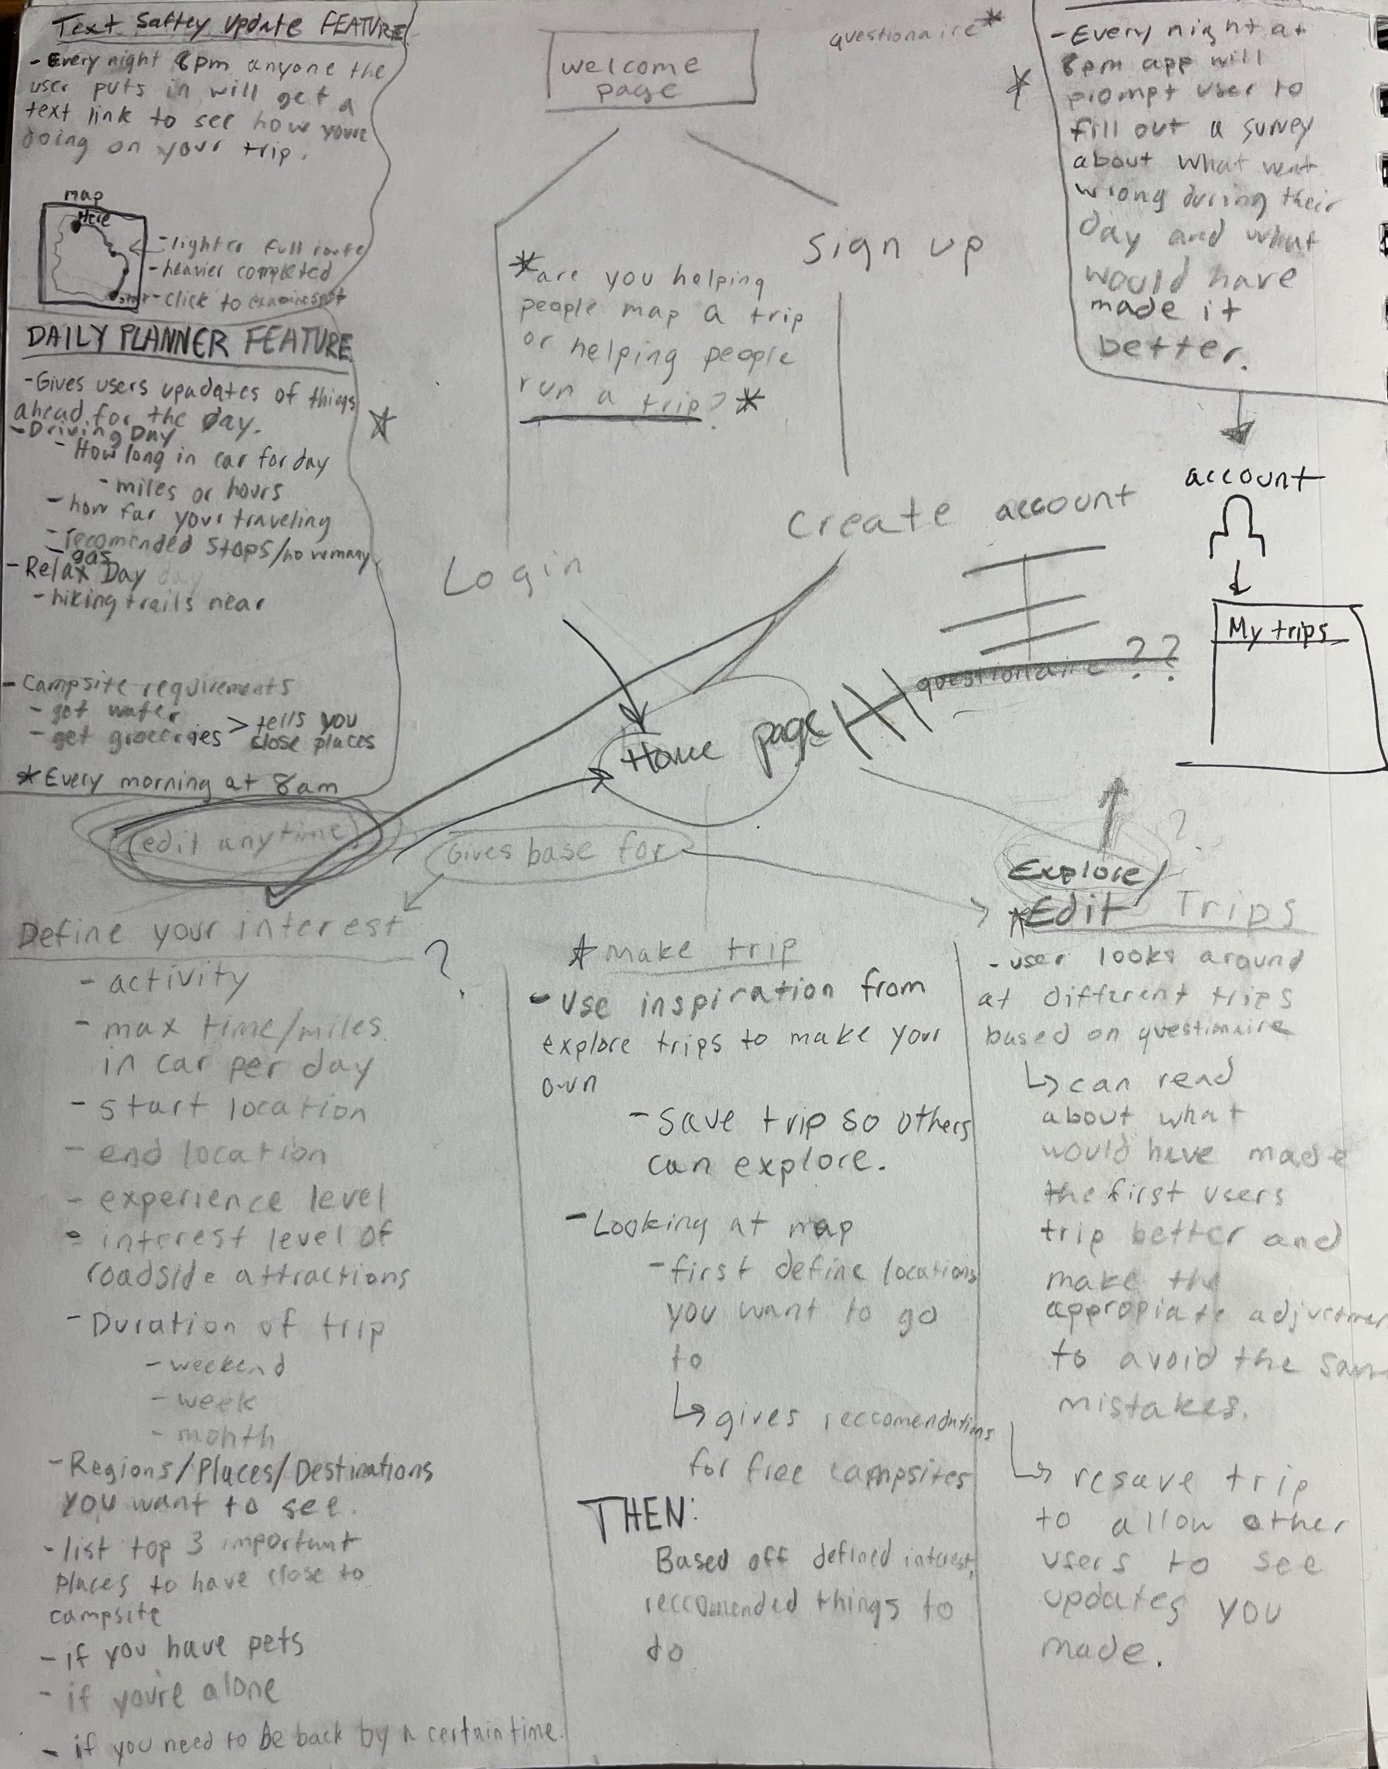 Text Saftey Update FEATURE
- Every night 8pm anyone the
user puts in will get a
text link to see how youre
doing on your trip.
map
Here
- lighter full route
- heavier completed
- click to examine spot
DAILY PLANNER FEATURE
- Gives users upadates of things
ahead for the day.
- Driving Day
- How long in car for day
- miles or hours
- how far your traveling
- recomended stops/how many
- gas
- Relax Day
- hiking trails near
- Campsite requirements
- get water
- get groceries > tells you
close places
* Every morning at 8am
welcome
page
questionaire*
*are you helping
people map a trip
or helping people
run a trip? *
sign up
Login
create account
questionaire ??
Home page
- Every night at
8pm app will
prompt user to
fill out a survey
about what went
wrong during their
day and what
would have
made it
better.
account
My trips
edit anytime
Gives base for
Define your interest
?
- activity
- max time/miles
in car per day
- start location
- end location
- experience level
- interest level of
roadside attractions
- Duration of trip
- weekend
- week
- month
- Regions/Places/Destinations
you want to see.
- list top 3 important
places to have close to
campsite
- if you have pets
- if you're alone
- if you need to be back by a certain time.
* make trip
- Use inspiration from
explore trips to make your
own
- save trip so others
can explore.
- Looking at map
- first define locations
you want to go
to
↳ gives reccomendations
for free campsites
THEN:
Based off defined interest,
reccomended things to
do
?
Explore/
*Edit Trips
- user looks around
at different trips
based on questionaire
↳ can read
about what
would have made
the first users
trip better and
make the
appropiate
to avoid the
mistakes.
↳ resave trip
to allow other
users to see
updates you
made.